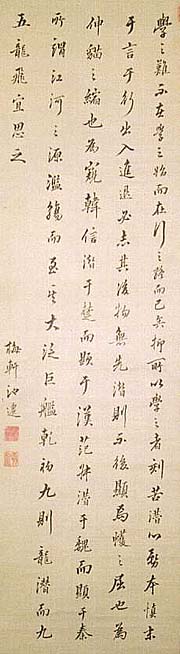 學之難不在學之始而在行之而已矣抑所以學之者刻苦潛心勤本慎末
于言于行出入進退必志其後物無先潛則不後顯焉蠖之屈也為
伸貓之縮也為窺韓信潛于楚而顯于漢范雎潛于魏而顯于秦
所謂江河之源濫觴而至其大泛巨艦乾初九則龍潛而九
五龍飛宜思之
梅軒